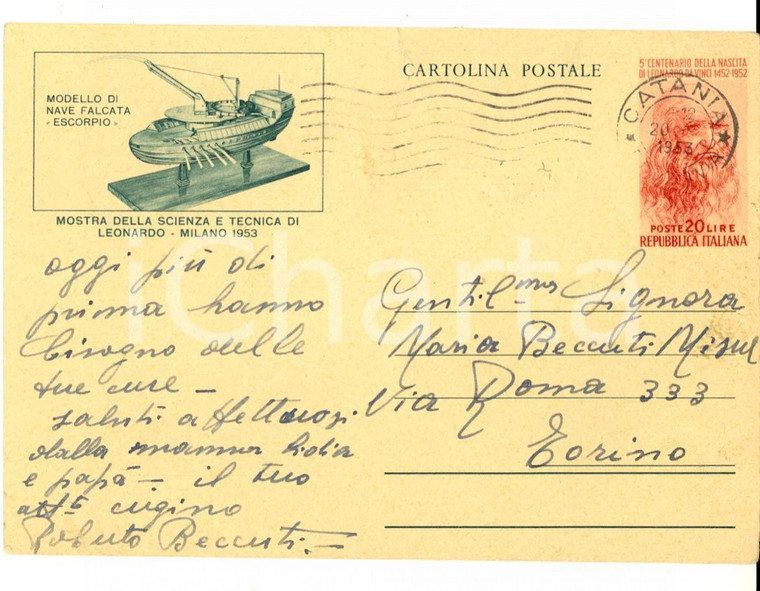 CARTOLINA POSTALE
5° CENTENARIO DELLA NASCITA
DI LEONARDO DA VINCI 1452-1952
CATANIA
20
1953
POSTE 20 LIRE
REPUBBLICA ITALIANA
MODELLO DI
NAVE FALCATA
« ESCORPIO »
MOSTRA DELLA SCIENZA E TECNICA DI
LEONARDO - MILANO 1953
oggi più di
prima hanno
bisogno delle
tue cure –
saluti affettuosi
dalla mamma
e papà – il tuo
aff.to cugino
Roberto Beccuti. –
Gentil.ma Signora
Maria Beccuti
Via Roma 333
Torino
iCharta